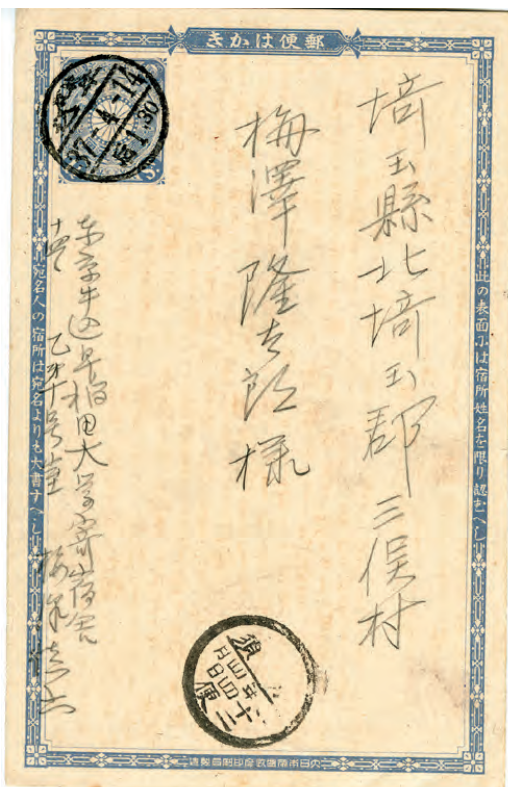 郵便はかき
此の表面には宿所姓名を限り認むへし
埼玉縣北埼玉郡三俣村
梅澤隆太郎様
東京牛込早稲田大学寄宿舎
梅澤慎六
宛名人の宿所は宛名よりも大書すへし
37-4-14
后1.30
大日本帝國政府印刷局製造